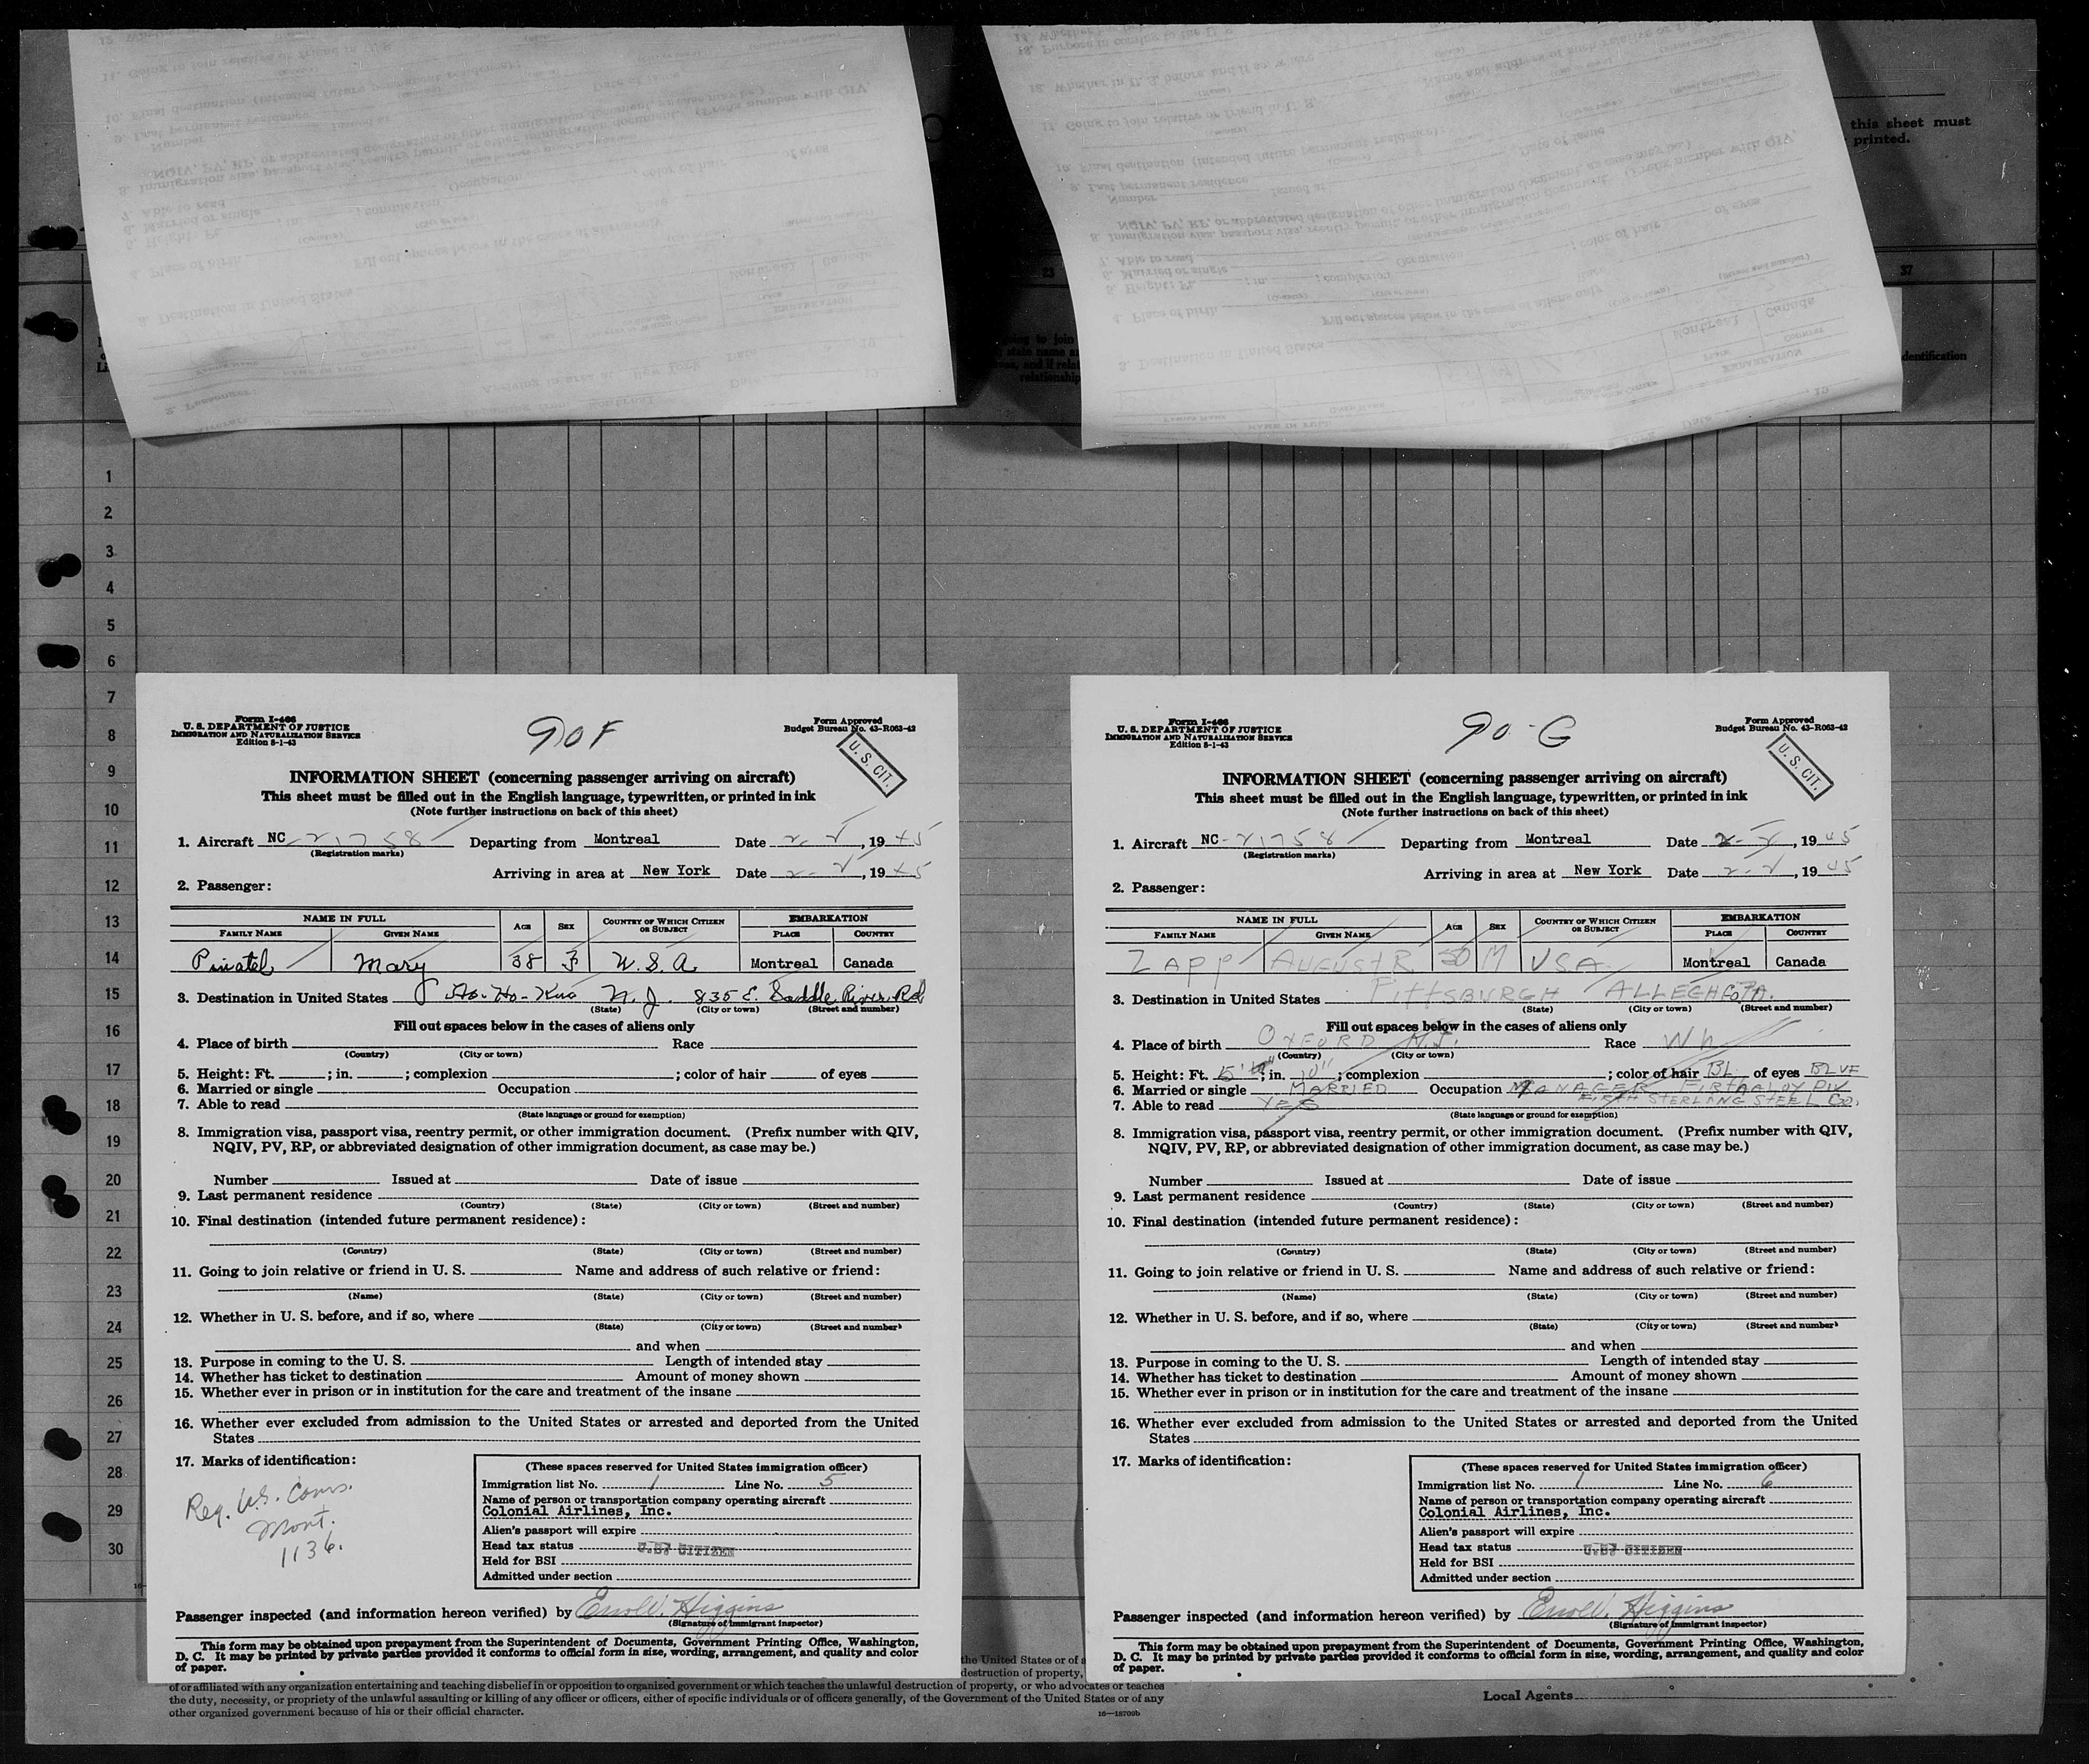 this sheet must
printed.
23
37
going to join
relationship
dentification
1
2
3
4
5
6
7
8
9
10
11
12
13
14
15
16
17
18
19
20
21
22
23
24
25
26
27
28
29
30
Form I-466
U. S. DEPARTMENT OF JUSTICE
IMMIGRATION AND NATURALIZATION SERVICE
Edition 8-1-43
90F
Form Approved
Budget Bureau No. 43-R063-42
U. S. CIT.
INFORMATION SHEET (concerning passenger arriving on aircraft)
This sheet must be filled out in the English language, typewritten, or printed in ink
(Note further instructions on back of this sheet)
1. Aircraft NC-21758 Departing from Montreal Date 2-2, 1945
(Registration marks)
Arriving in area at New York Date 2-2, 1945
2. Passenger:
NAME IN FULL AGE SEX COUNTRY OF WHICH CITIZEN OR SUBJECT EMBARKATION
FAMILY NAME GIVEN NAME PLACE COUNTRY
Mary 38 F U.S.A. Montreal Canada
3. Destination in United States Ho-Ho-Kus N.J. 835 E. Saddle River Rd
(State) (City or town) (Street and number)
Fill out spaces below in the cases of aliens only
4. Place of birth Race
(Country) (City or town)
5. Height: Ft. ; in. ; complexion ; color of hair of eyes
6. Married or single Occupation
7. Able to read
(State language or ground for exemption)
8. Immigration visa, passport visa, reentry permit, or other immigration document. (Prefix number with QIV,
NQIV, PV, RP, or abbreviated designation of other immigration document, as case may be.)
Number Issued at Date of issue
9. Last permanent residence
(Country) (State) (City or town) (Street and number)
10. Final destination (intended future permanent residence):
(Country) (State) (City or town) (Street and number)
11. Going to join relative or friend in U. S. Name and address of such relative or friend:
(Name) (State) (City or town) (Street and number)
12. Whether in U. S. before, and if so, where
(State) (City or town) (Street and number)
and when
13. Purpose in coming to the U. S. Length of intended stay
14. Whether has ticket to destination Amount of money shown
15. Whether ever in prison or in institution for the care and treatment of the insane
16. Whether ever excluded from admission to the United States or arrested and deported from the United
States
17. Marks of identification:
Reg. U.S. Cons.
Mont.
1136.
(These spaces reserved for United States immigration officer)
Immigration list No. 1 Line No. 5
Name of person or transportation company operating aircraft
Colonial Airlines, Inc.
Alien's passport will expire
Head tax status U.S. CITIZEN
Held for BSI
Admitted under section
Passenger inspected (and information hereon verified) by Errol W. Higgins
(Signature of immigrant inspector)
This form may be obtained upon prepayment from the Superintendent of Documents, Government Printing Office, Washington,
D. C. It may be printed by private parties provided it conforms to official form in size, wording, arrangement, and quality and color
of paper.
Form I-466
U. S. DEPARTMENT OF JUSTICE
IMMIGRATION AND NATURALIZATION SERVICE
Edition 8-1-43
90-G
Form Approved
Budget Bureau No. 43-R063-42
U. S. CIT.
INFORMATION SHEET (concerning passenger arriving on aircraft)
This sheet must be filled out in the English language, typewritten, or printed in ink
(Note further instructions on back of this sheet)
1. Aircraft NC-21758 Departing from Montreal Date 2-2, 1945
(Registration marks)
Arriving in area at New York Date 2-2, 1945
2. Passenger:
NAME IN FULL AGE SEX COUNTRY OF WHICH CITIZEN OR SUBJECT EMBARKATION
FAMILY NAME GIVEN NAME PLACE COUNTRY
ZAPP AUGUST R 50 M USA Montreal Canada
3. Destination in United States PITTSBURGH ALLEGH Co PA.
(State) (City or town) (Street and number)
Fill out spaces below in the cases of aliens only
4. Place of birth OXFORD N.J. Race Wh
(Country) (City or town)
5. Height: Ft. 5' ; in. 10" ; complexion ; color of hair BL of eyes BLUE
6. Married or single MARRIED Occupation MANAGER FIRTHALOY DIV
7. Able to read YES FIRTH STERLING STEEL Co.
(State language or ground for exemption)
8. Immigration visa, passport visa, reentry permit, or other immigration document. (Prefix number with QIV,
NQIV, PV, RP, or abbreviated designation of other immigration document, as case may be.)
Number Issued at Date of issue
9. Last permanent residence
(Country) (State) (City or town) (Street and number)
10. Final destination (intended future permanent residence):
(Country) (State) (City or town) (Street and number)
11. Going to join relative or friend in U. S. Name and address of such relative or friend:
(Name) (State) (City or town) (Street and number)
12. Whether in U. S. before, and if so, where
(State) (City or town) (Street and number)
and when
13. Purpose in coming to the U. S. Length of intended stay
14. Whether has ticket to destination Amount of money shown
15. Whether ever in prison or in institution for the care and treatment of the insane
16. Whether ever excluded from admission to the United States or arrested and deported from the United
States
17. Marks of identification:
(These spaces reserved for United States immigration officer)
Immigration list No. 1 Line No. 6
Name of person or transportation company operating aircraft
Colonial Airlines, Inc.
Alien's passport will expire
Head tax status U.S. CITIZEN
Held for BSI
Admitted under section
Passenger inspected (and information hereon verified) by Errol W. Higgins
(Signature of immigrant inspector)
This form may be obtained upon prepayment from the Superintendent of Documents, Government Printing Office, Washington,
D. C. It may be printed by private parties provided it conforms to official form in size, wording, arrangement, and quality and color
of paper.
the United States or of
destruction of property,
of or affiliated with any organization entertaining and teaching disbelief in or opposition to organized government or which teaches the unlawful destruction of property, or who advocates or teaches
the duty, necessity, or propriety of the unlawful assaulting or killing of any officer or officers, either of specific individuals or of officers generally, of the Government of the United States or of any
other organized government because of his or their official character.
16—18709b
Local Agents